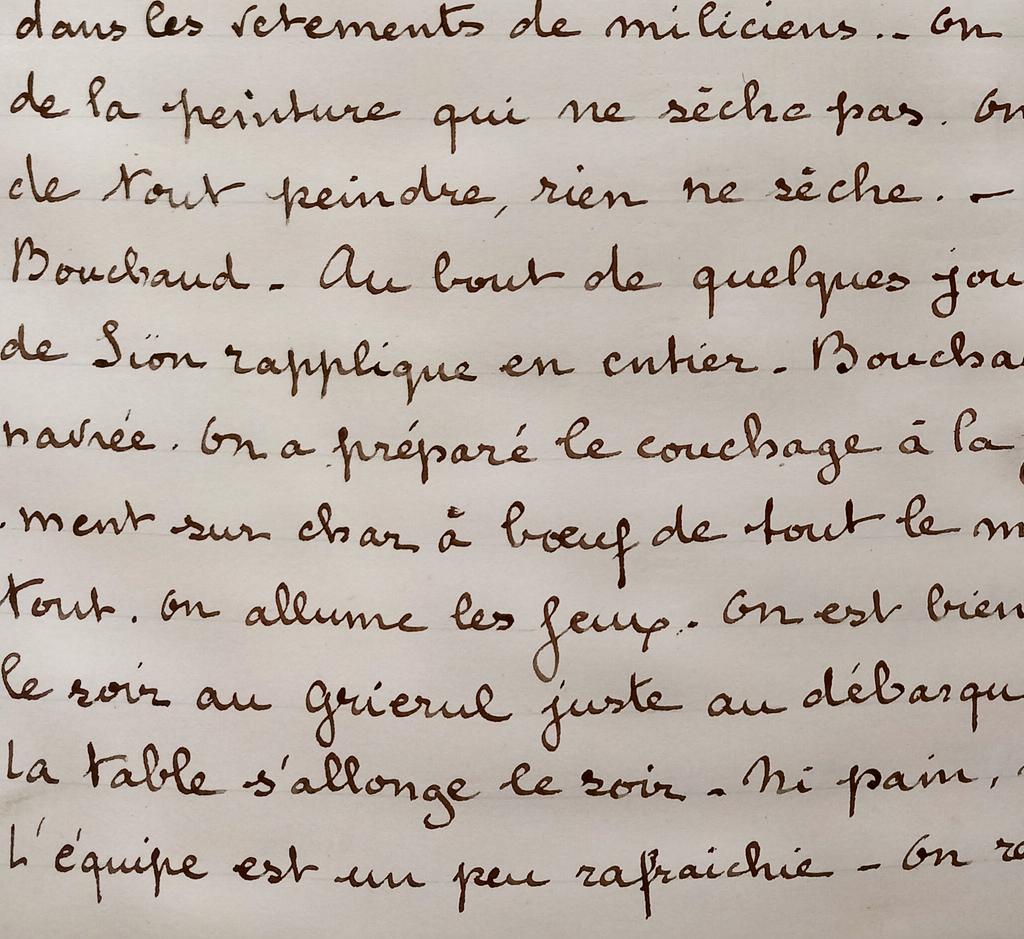 dans les vêtements de miliciens.. On
de la peinture qui ne sèche pas. On
de tout peindre, rien ne sèche. -
Bouchaud - Au bout de quelques jou
de Sïon rapplique en entier - Boucha
navrée. On a préparé le couchage à la
ment sur char à bœuf de tout le m
tout. On allume les feux. On est bien
le soir au Grierul juste au débarqu
La table s'allonge le soir - Ni pain,
L'équipe est un peu rafraichie - On re